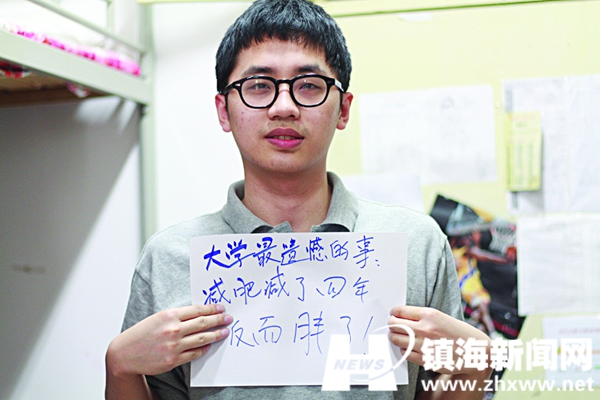 大学最遗憾的事:
减肥减了四年
反而胖了!
NEWS
镇海新闻网
www.zhxww.net